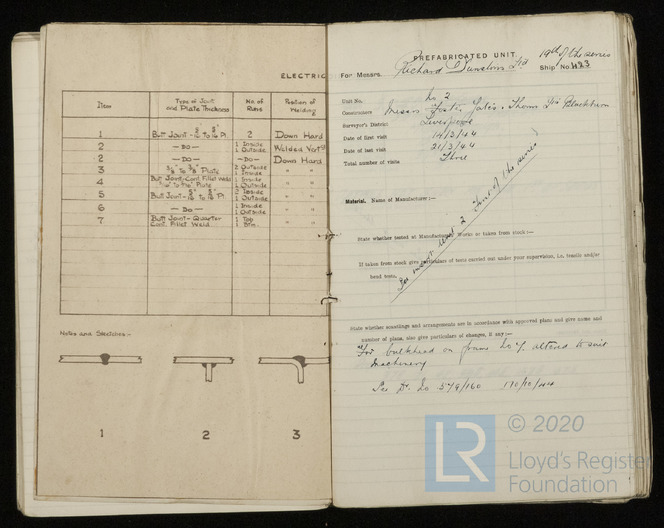 ELECTRIC
Item Type of Joint and Plate Thickness No. of Runs Position of Welding
1 Butt Joint - Pl. 2 Down Hand
2 — DO — 1 Inside 1 Outside Welded Vert
2 — DO — — DO — Down Hand
3 Plate 2 Outside 1 Inside " "
4 Butt Joint-Cont. Fillet Weld Plate 1 Inside 1 Outside " "
5 Butt Joint - Pl. Inside 1 Outside " "
6 — DO — 1 Inside 1 Outside " "
7 Butt Joint - Quarter Cont. Fillet Weld 1 Top 1 Btm. " "
Notes and Sketches:-
1 2 3
PREFABRICATED UNIT.
19th of the series
For Messrs. Richard Dunston Ltd Ship No. 423
Unit No. No 2
Constructors Messrs Foster Yates & Thom Ltd Blackburn
Surveyor's District Liverpool
Date of first visit 14/3/44
Date of last visit 21/3/44
Total number of visits Three
Material. Name of Manufacturer:—
State whether tested at Manufacturers' Works or taken from stock:—
If taken from stock give particulars of tests carried out under your supervision, i.e. tensile and/or
bend tests.
See unit 2 of the series
State whether scantlings and arrangements are in accordance with approved plans and give name and
number of plans, also give particulars of changes, if any:—
bulkhead on frame No 7. altered to suit
machinery
© 2020
LR
Lloyd's Register
Foundation